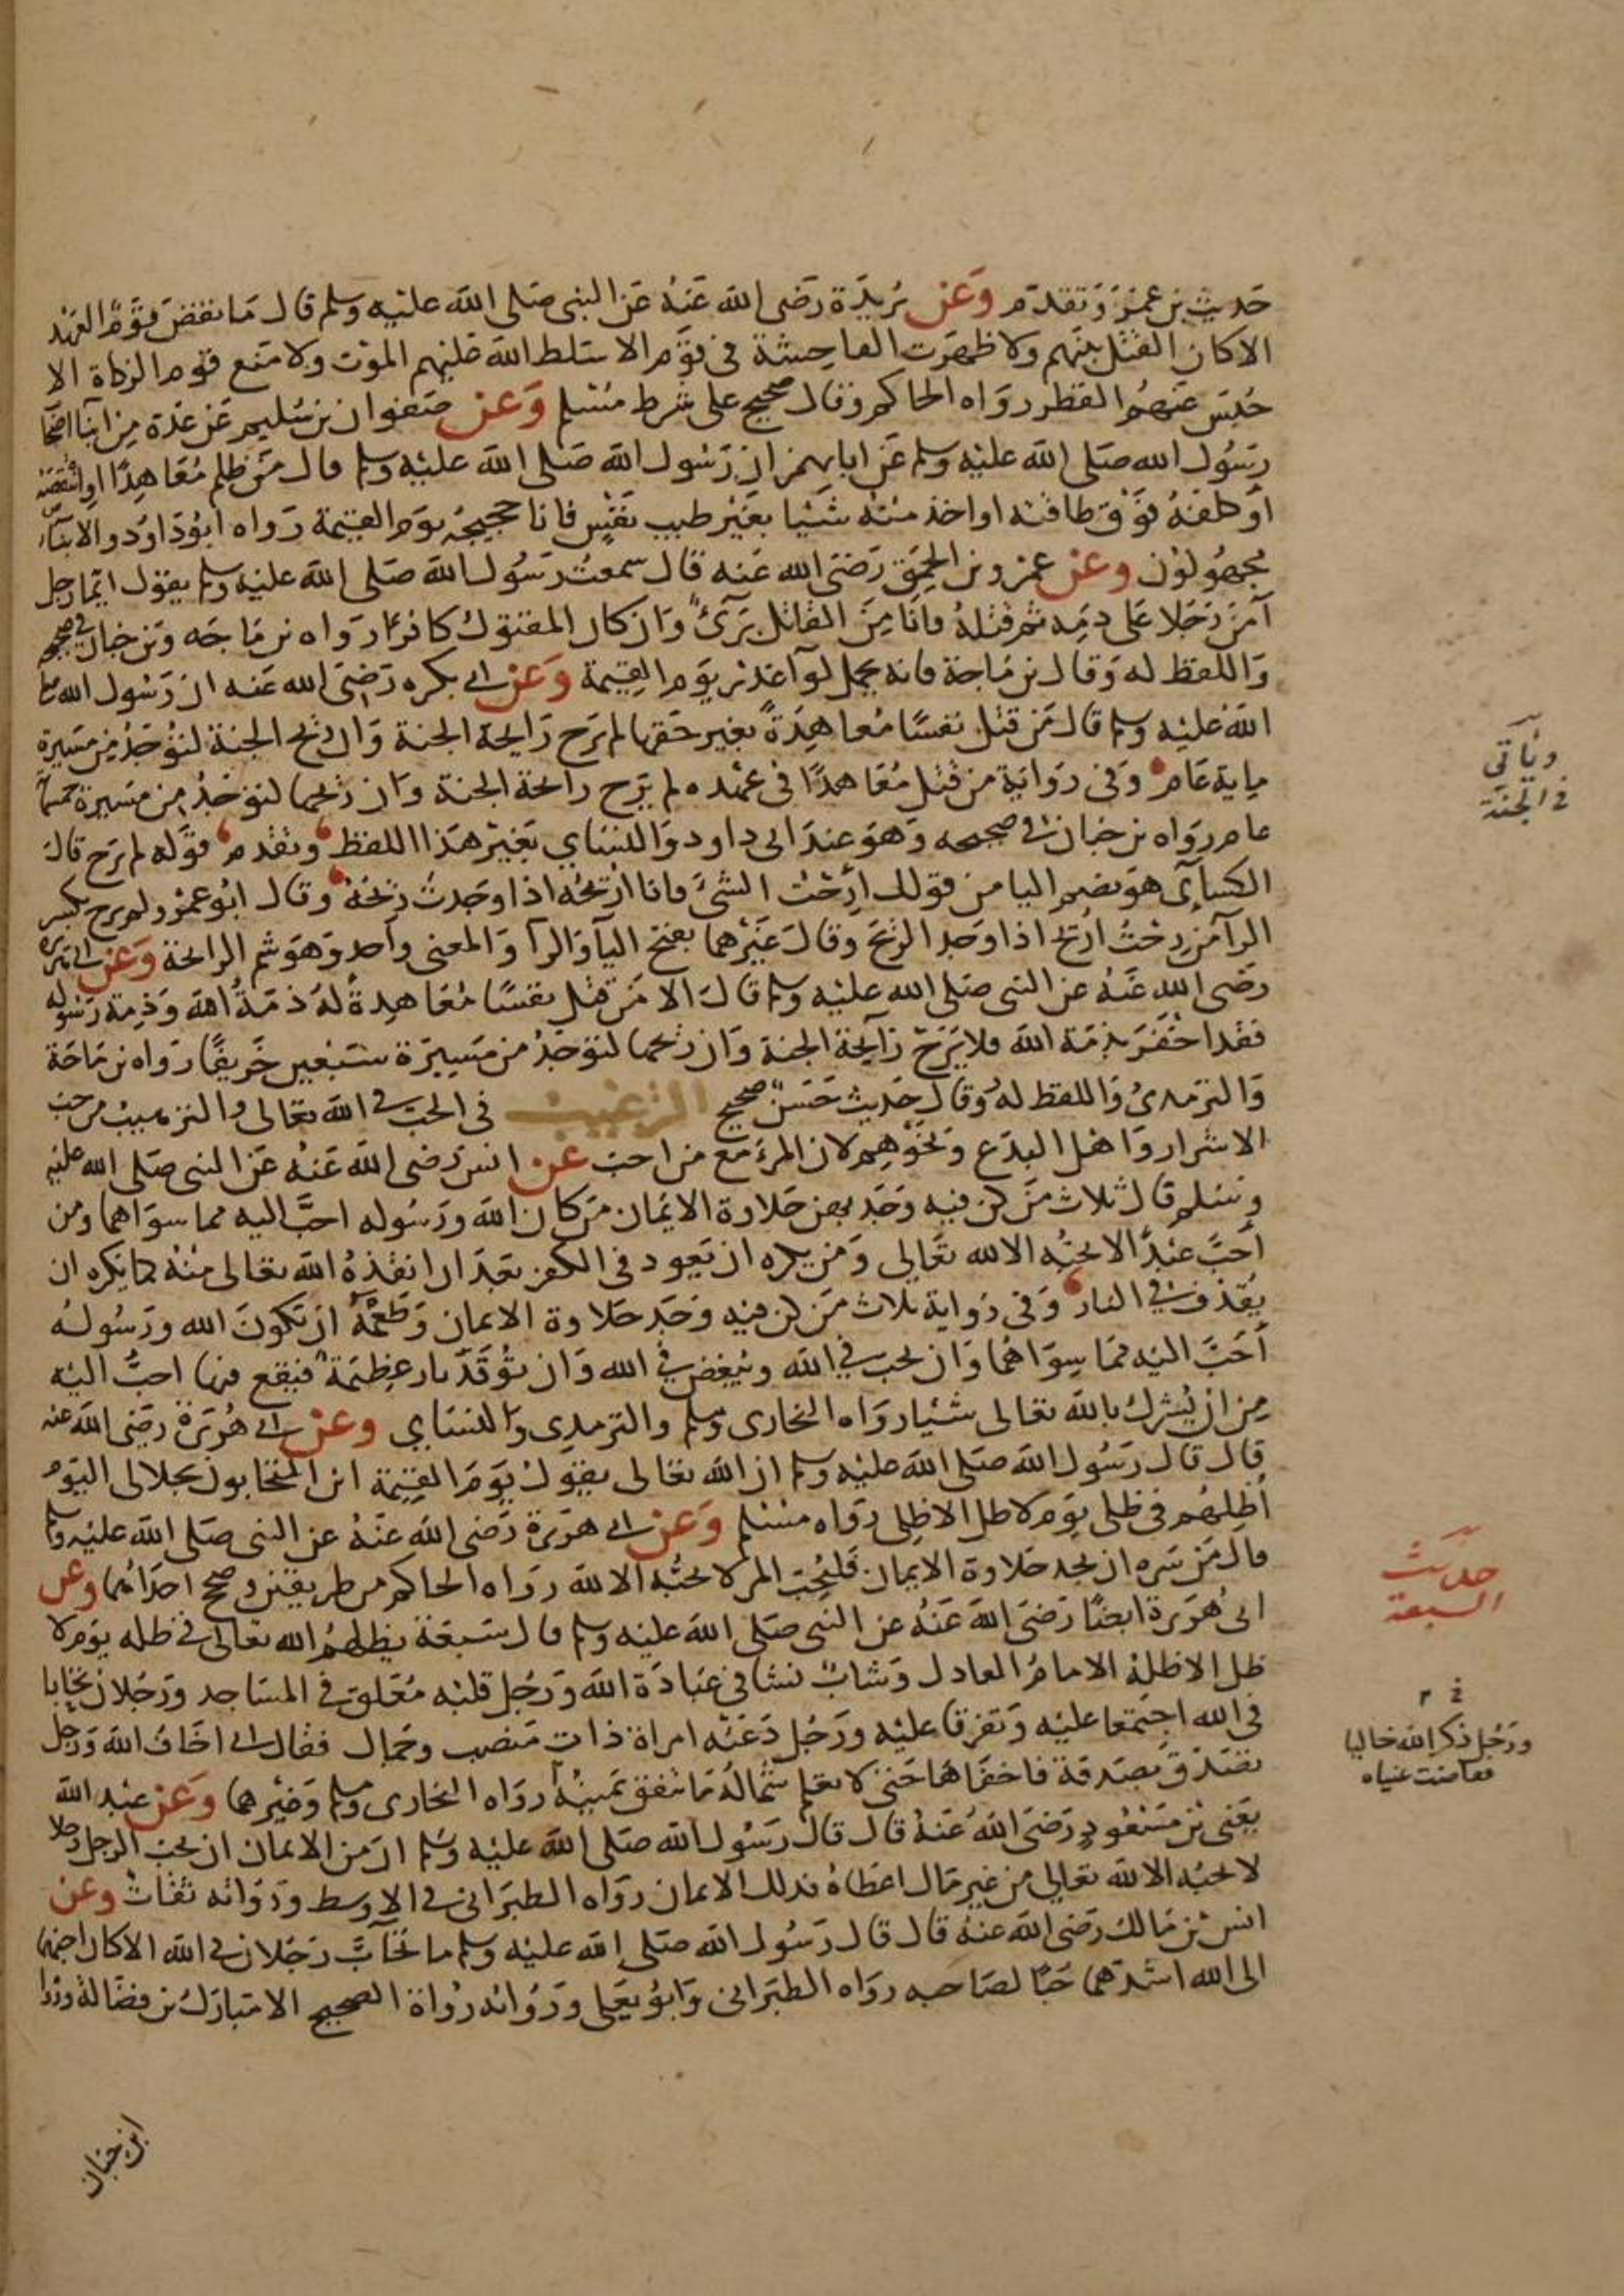 حديث بن عمر وتقدم وعن بريدة رضى الله عنه عن النبى صلى الله عليه وسلم قال ما نقض قوم العهد
الا كان القتل بينهم ولا ظهرت الفاحشة فى قوم الا سلط الله عليهم الموت ولا منع قوم الزكاة الا
حبس عنهم القطر رواه الحاكم وقال صحيح على شرط مسلم وعن صفوان بن سليم عن عدة من ابنا اصحاب
رسول الله صلى الله عليه وسلم عن ابايهم ان رسول الله صلى الله عليه وسلم قال من ظلم معاهدا او انتقصه
او كلفه فوق طاقته او اخذ منه شيئا بغير طيب نفس فانا حجيجه يوم القيمة رواه ابو داود والابناء
مجهولون وعن عمرو بن الحمق رضى الله عنه قال سمعت رسول الله صلى الله عليه وسلم يقول ايما رجل
آمن رجلا على دمه ثم قتله فانا من القاتل برئ وان كان المقتول كافرا رواه بن ماجه وبن حبان فى صحيحه
واللفظ له وقال بن ماجة فانه يحمل لوآ غدر يوم القيمة وعن ابى بكره رضى الله عنه ان رسول الله صلى
الله عليه وسلم قال من قتل نفسا معاهدة بغير حقها لم يرح رايحة الجنة وان ريح الجنة لتوجد من مسيرة
ماية عام وفى رواية من قتل معاهدا فى عهده لم يرح رائحة الجنة وان ريحها لتوجد من مسيرة خمسماية
عام رواه بن حبان فى صحيحه وهو عند ابى داود والنساي بغير هذا اللفظ وتقدم قوله لم يرح قال
الكساى هو بضم اليا من قولك ارحت الشئ فانا اريحه اذا وجدت ريحه وقال ابو عمرو لم يرح بكسر
الرآ من رحت اريح اذا وجد الريح وقال غيرهما بفتح اليآ والرآ والمعنى واحد وهو شم الرائحة وعن ابى هريرة
رضى الله عنه عن النبى صلى الله عليه وسلم قال الا من قتل نفسا معاهدة له ذمة الله وذمة رسوله
فقد اخفر بذمة الله فلا يرح رآيحة الجنة وان ريحها لتوجد من مسيرة سبعين خريفا رواه بن ماجة
والترمذى واللفظ له وقال حديث حسن صحيح الترغيب فى الحب فى الله تعالى والترهيب من حب
الاشرار واهل البدع ونحوهم لان المرء مع من احب عن انس رضى الله عنه عن النبى صلى الله عليه
وسلم قال ثلاث من كن فيه وجد بهن حلاوة الايمان من كان الله ورسوله احب اليه مما سواهما ومن
احب عبدا لا يحبه الا لله تعالى ومن يكره ان يعود فى الكفر بعد ان انقذه الله تعالى منه كما يكره ان
يقذف فى النار وفى رواية ثلاث من كن فيه وجد حلاوة الايمان وطعمه ان يكون الله ورسوله
احب اليه مما سواهما وان يحب فى الله ويبغض فى الله وان توقد نار عظيمة فيقع فيها احب اليه
من ان يشرك بالله تعالى شيئا رواه البخارى ومسلم والترمدى والنساي وعن ابى هريرة رضى الله عنه
قال قال رسول الله صلى الله عليه وسلم ان الله تعالى يقول يوم القيمة اين المتحابون بجلالى اليوم
اظلهم فى ظلى يوم لا ظل الا ظلى رواه مسلم وعن ابى هريرة رضى الله عنه عن النبى صلى الله عليه وسلم
قال من سره ان يجد حلاوة الايمان فليحب المرء لا يحبه الا لله رواه الحاكم من طريقين وصحح احداهما وعن
ابى هريرة ايضا رضى الله عنه عن النبى صلى الله عليه وسلم قال سبعة يظلهم الله تعالى فى ظله يوم لا
ظل الا ظله الامام العادل وشاب نشا فى عبادة الله ورجل قلبه معلق فى المساجد ورجلان تحابا
فى الله اجتمعا عليه وتفرقا عليه ورجل دعته امراة ذات منصب وجمال فقال انى اخاف الله ورجل
تصدق بصدقة فاخفاها حتى لا تعلم شماله ما تنفق يمينه رواه البخارى ومسلم وغيرهما وعن عبد الله
يعنى بن مسعود رضى الله عنه قال قال رسول الله صلى الله عليه وسلم ان من الايمان ان يحب الرجل رجلا
لا يحبه الا لله تعالى من غير مال اعطاه فدلك الايمان رواه الطبرانى فى الاوسط ورواته ثقات وعن
انس بن مالك رضى الله عنه قال قال رسول الله صلى الله عليه وسلم ما تحاب رجلان فى الله الا كان احبهما
الى الله اشدهما حبا لصاحبه رواه الطبرانى وابو يعلى ورواته رواة الصحيح الا مبارك بن فضالة ورواه
ابن حبان
وياتى
فى الجنة
حديث
السبعة
خ م
ورجل ذكر الله خاليا
ففاضت عيناه